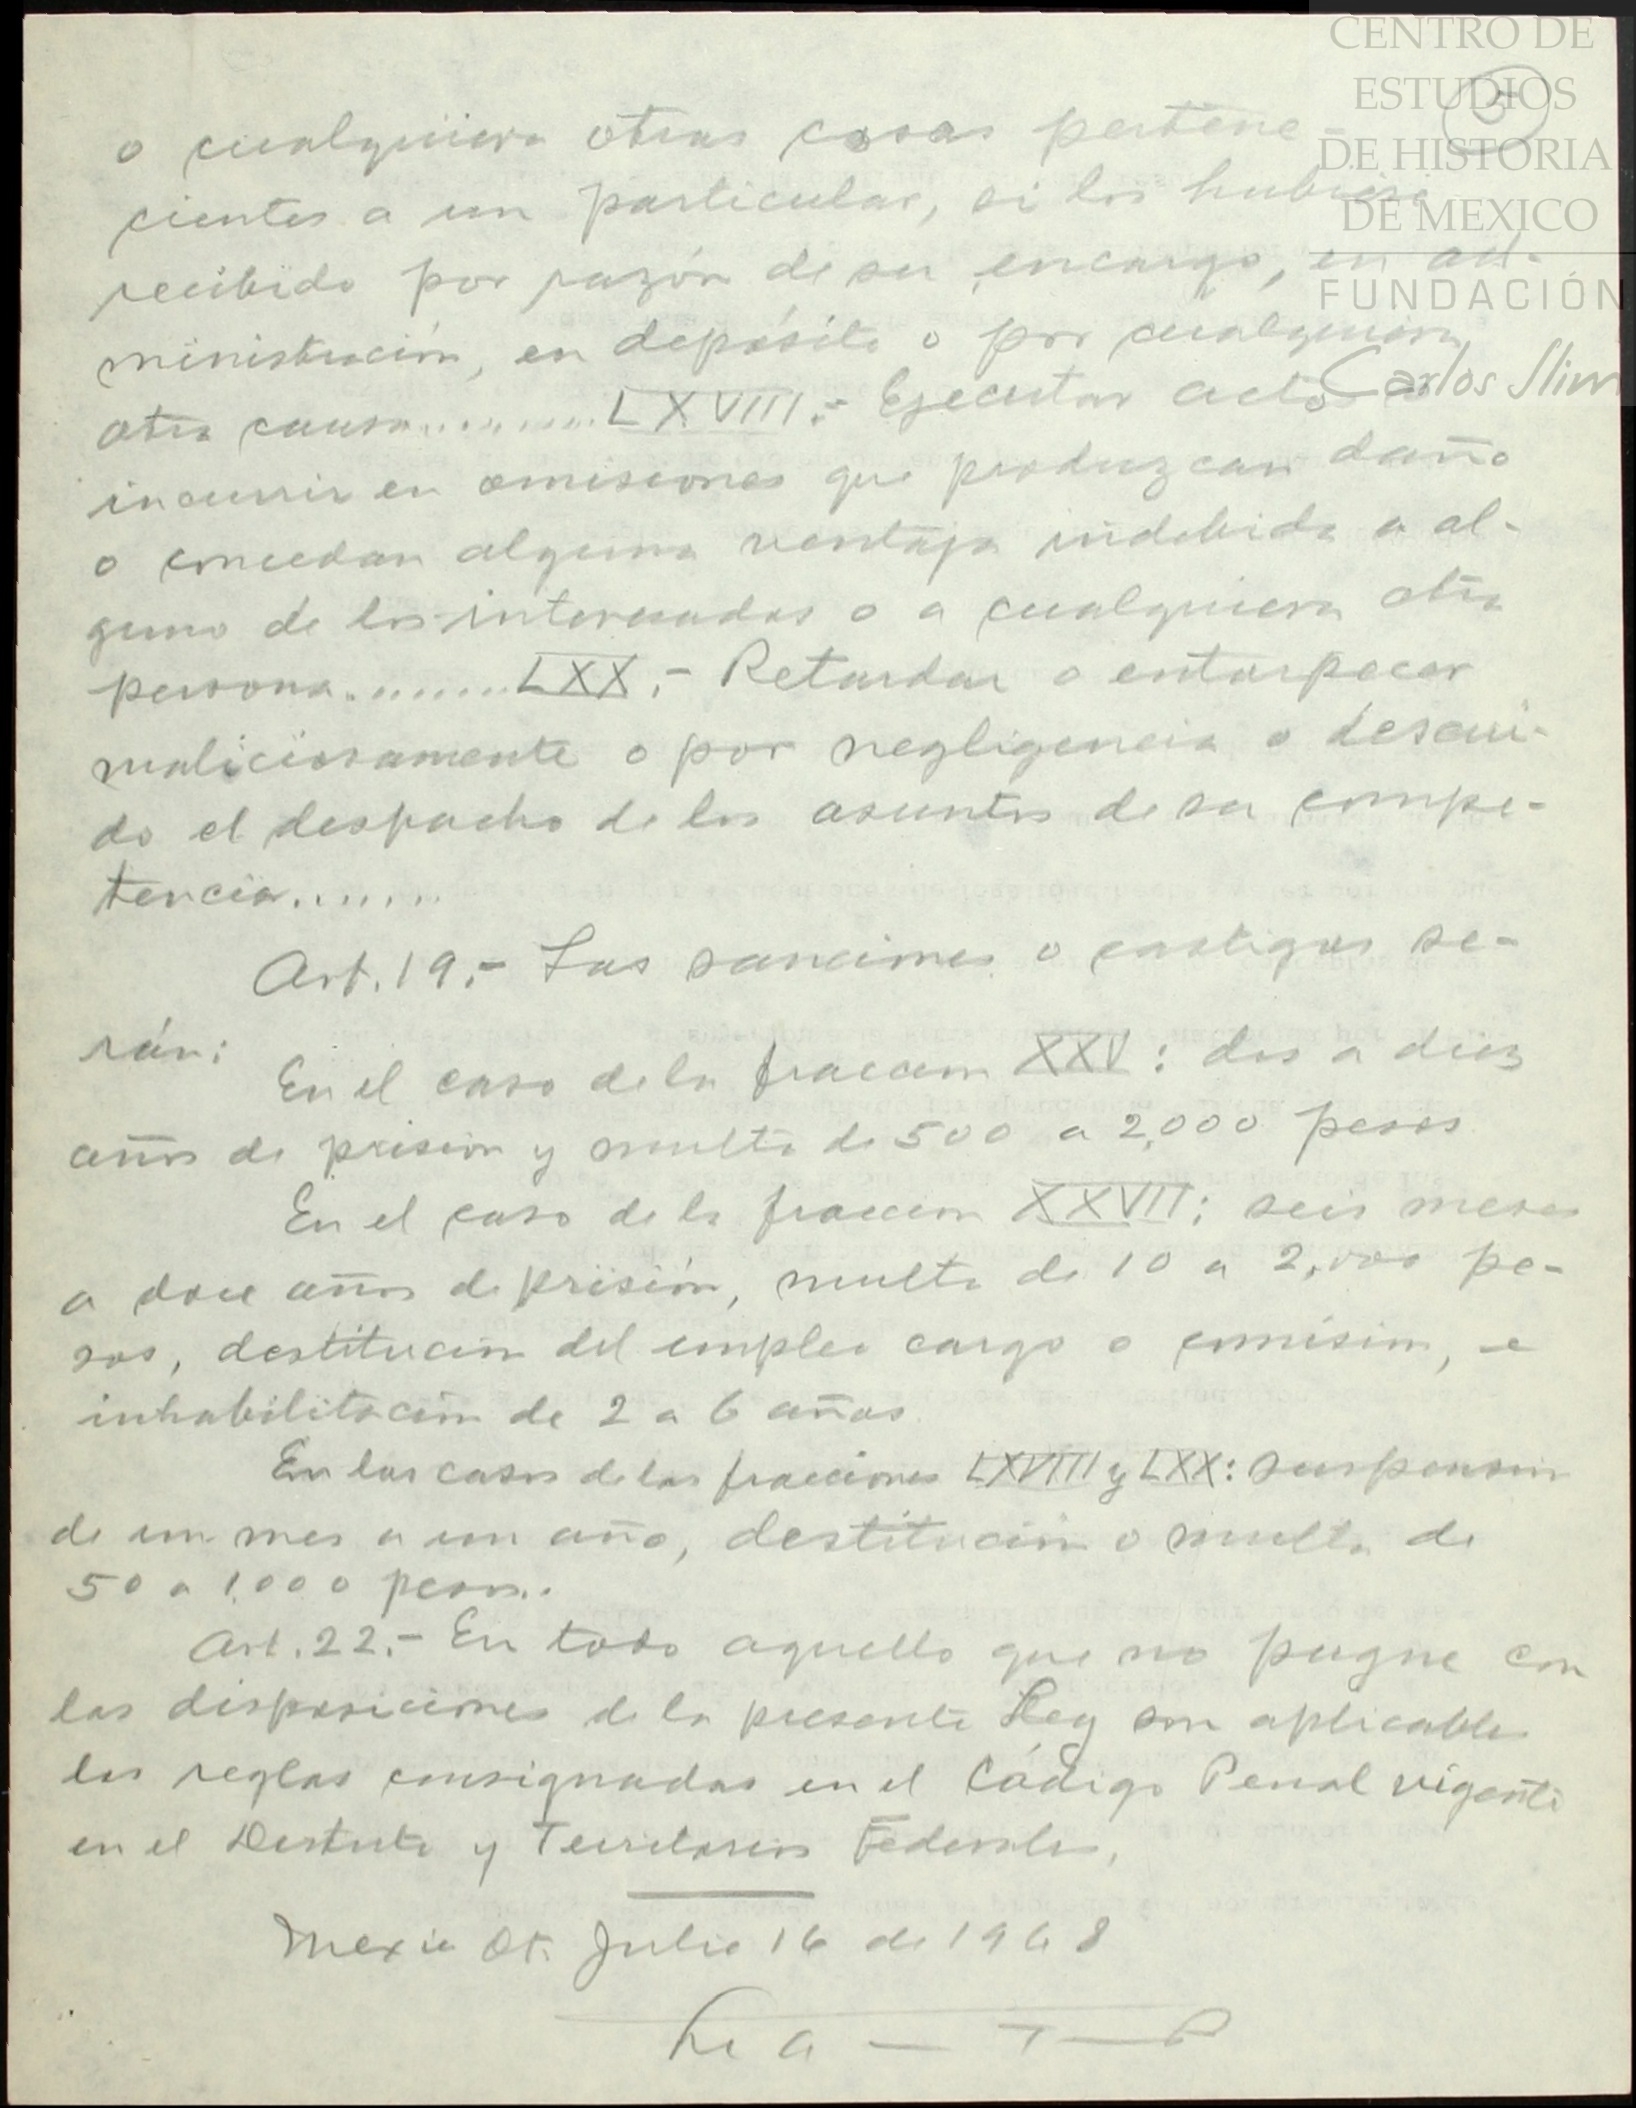 CENTRO DE
ESTUDIOS
DE HISTORIA
DE MEXICO
FUNDACIÓN
Carlos Slim
5
o cualquiera otras cosas pertene-
cientes a un particular, si los hubiese
recibido por razón de su encargo, en ad-
ministración, en depósito o por cualquiera
otra causa.......... LXVIII.- Ejecutar actos o
incurrir en omisiones que produzcan daño
o concedan alguna ventaja indebida a al-
guno de los interesados o a cualquiera otra
persona......... LXX.- Retardar o entorpecer
maliciosamente o por negligencia o descui-
do el despacho de los asuntos de su compe-
tencia.......
Art. 19.- Las sanciones o castigos se-
rán:
En el caso de la fraccion XXV: dos a diez
años de prision y multa de 500 a 2,000 pesos
En el caso de la fraccion XXVII: seis meses
a doce años de prisión, multa de 10 a 2,000 pe-
sos, destitucion del empleo cargo o comision, e
inhabilitacion de 2 a 6 años
En los casos de las fracciones LXVIII y LXX: suspension
de un mes a un año, destitucion o multa de
50 a 1,000 pesos..
Art. 22.- En todo aquello que no pugne con
las disposiciones de la presente Ley son aplicables
las reglas consignadas en el Código Penal vigente
en el Distrito y Territorios Federales.
Mexico D.F. Julio 16 de 1968